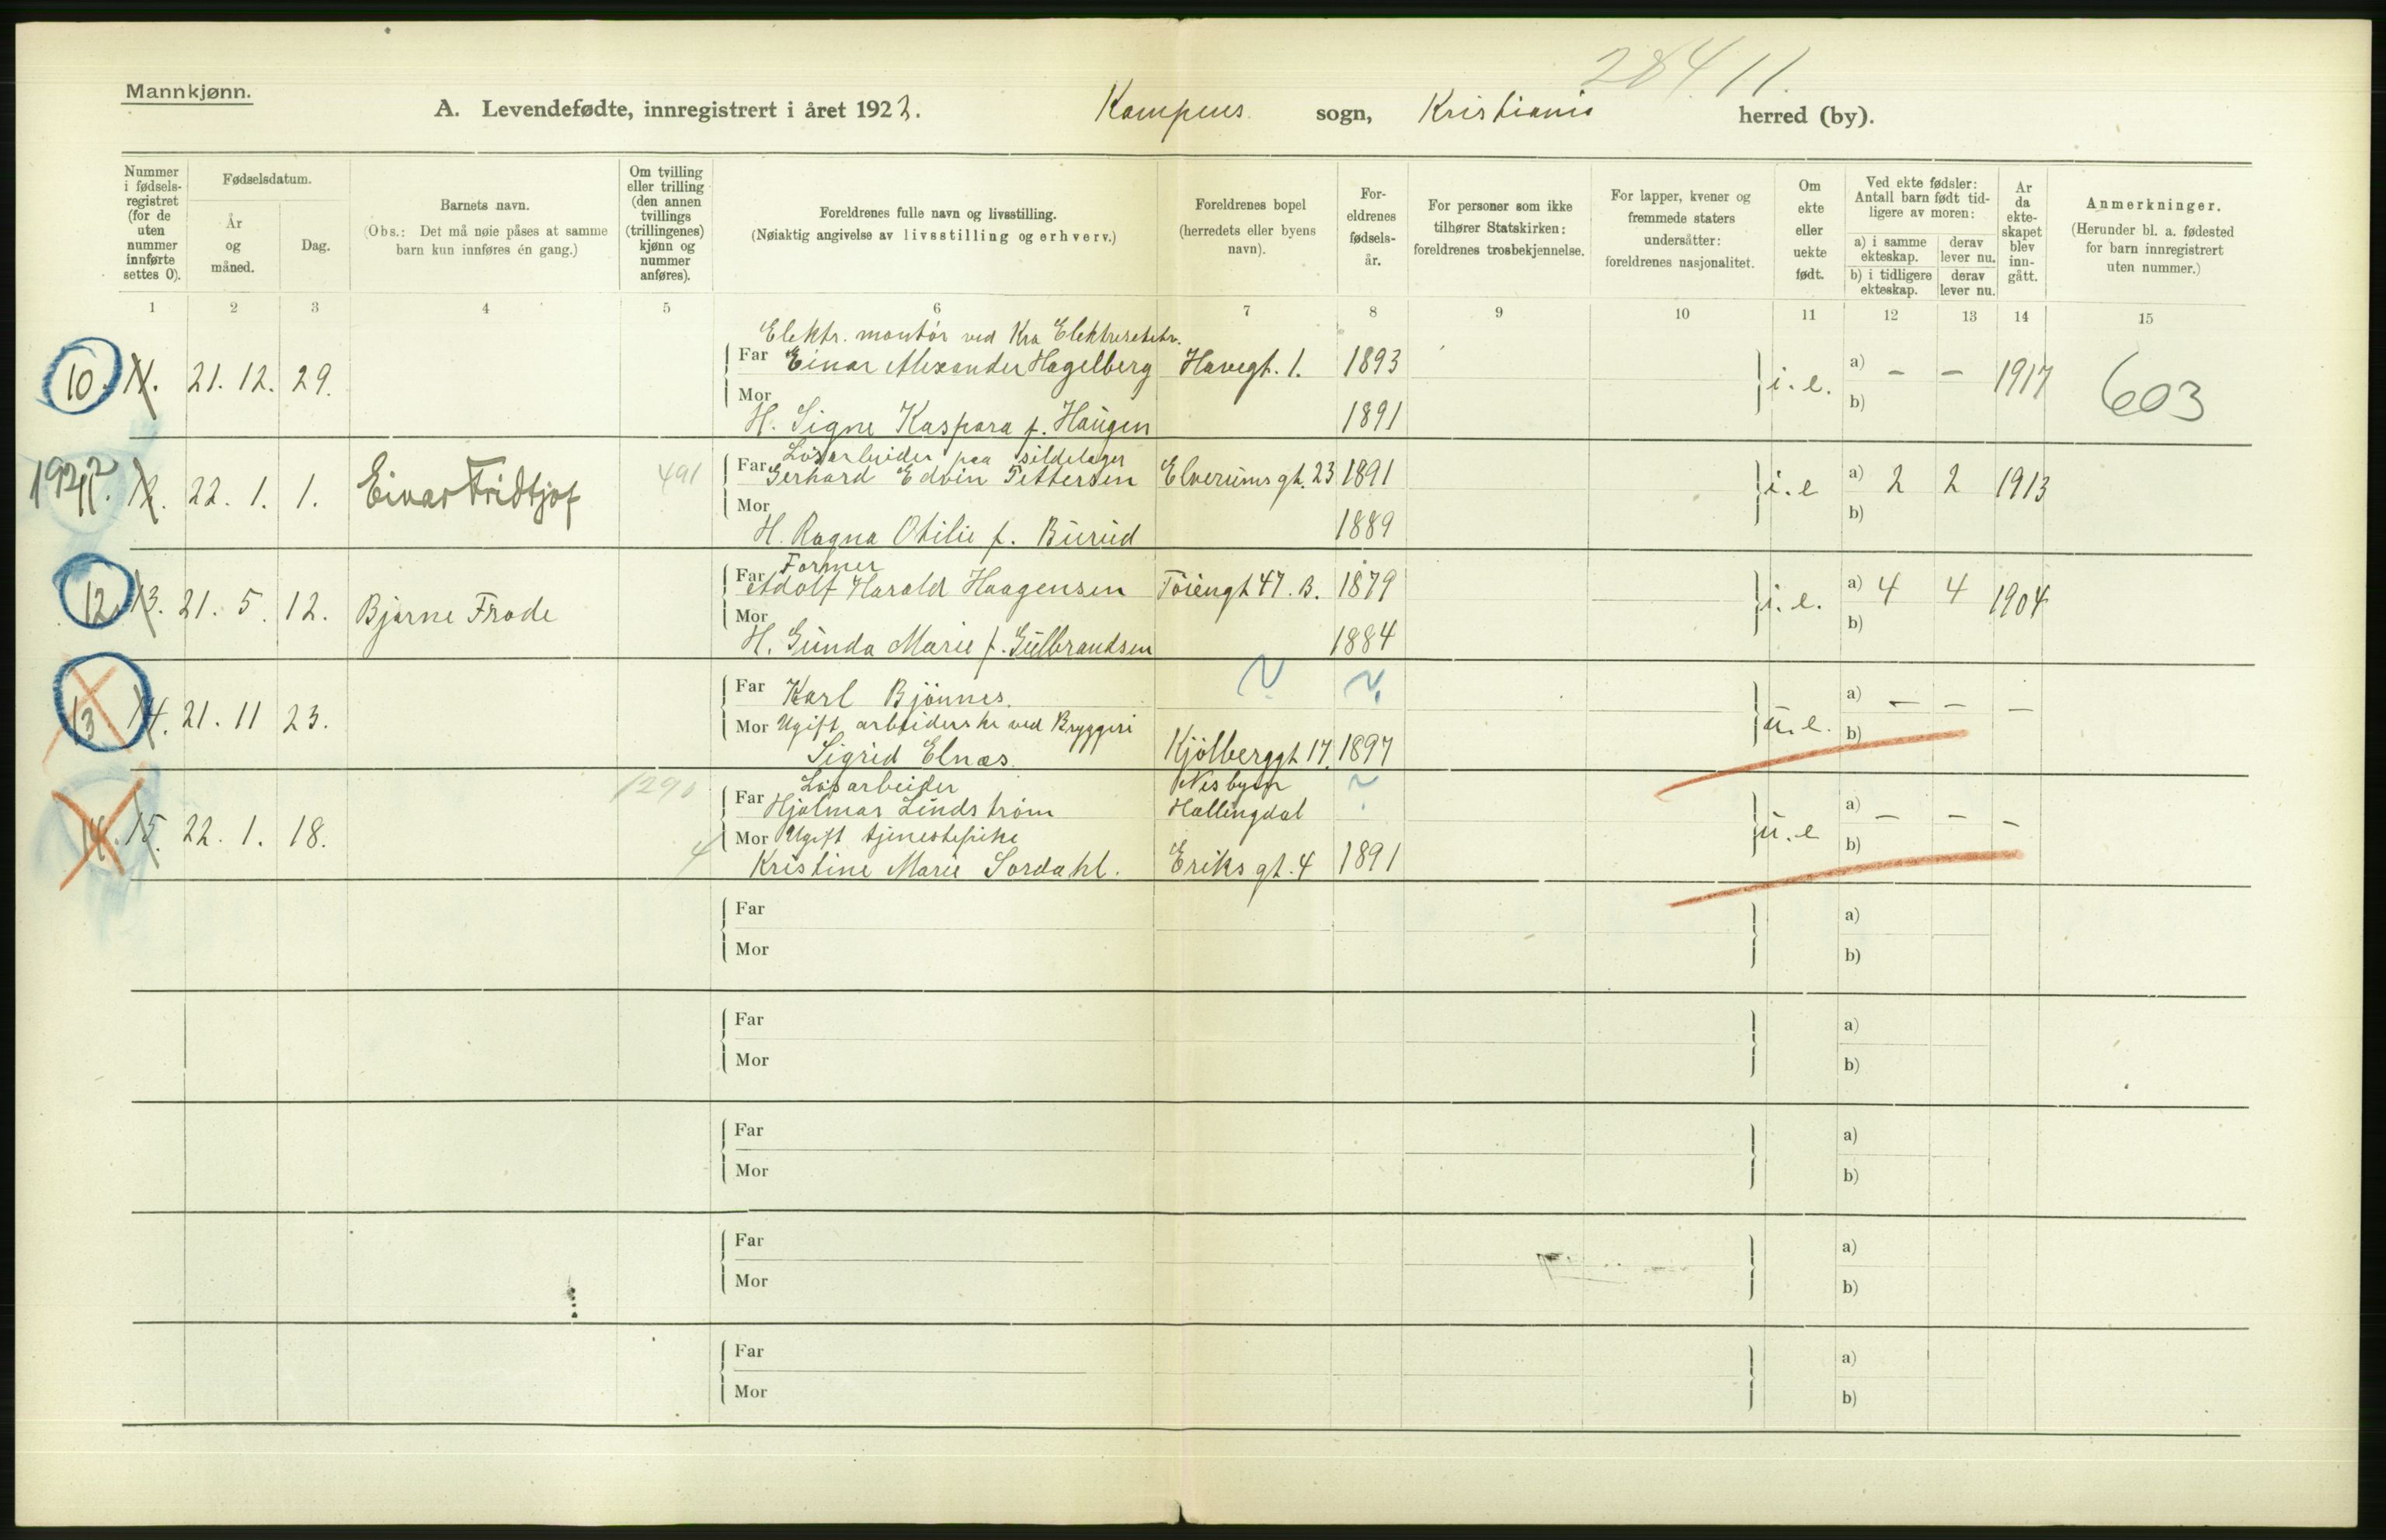 28411.
Mannkjønn.
A. Levendefødte, innregistrert i året 1922. Kampens sogn, Kristiania herred (by).
Nummer i fødselsregistret (for de uten nummer innførte settes 0).
Fødselsdatum.
År og måned.
Dag.
Barnets navn.
(Obs.: Det må nøie påses at samme barn kun innføres én gang.)
Om tvilling eller trilling (den annen tvillings (trillingenes) kjønn og nummer anføres).
Foreldrenes fulle navn og livsstilling.
(Nøiaktig angivelse av livsstilling og erhverv.)
Foreldrenes bopel (herredets eller byens navn).
Foreldrenes fødselsår.
For personer som ikke tilhører Statskirken: foreldrenes trosbekjennelse.
For lapper, kvener og fremmede staters undersåtter: foreldrenes nasjonalitet.
Om ekte eller uekte født.
Ved ekte fødsler: Antall barn født tidligere av moren:
a) i samme ekteskap. derav lever nu.
b) i tidligere ekteskap. derav lever nu.
Ar da ekteskapet blev inngått.
Anmerkninger.
(Herunder bl. a. fødested for barn innregistrert uten nummer.)
1 2 3 4 5 6 7 8 9 10 11 12 13 14 15
Elektr. montör ved Kra Elektricitetsv.
10. 11. 21. 12. 29. Far Einar Alexander Hagelberg Havegt. 1. 1893 i. e. a) - - 1917 603
Mor b)
H. Signe Kaspara f. Haugen 1891
Lösarbeider paa sildelager
1922 11. 12. 22. 1. 1. Einar Fridtjof 491 Far Gerhard Edvin Pettersen Elverumsgt. 23 1891 i. e a) 2 2 1913
Mor b)
H. Ragna Otilie f. Burud 1889
Former
12. 13. 21. 5. 12. Bjarne Frode Far Adolf Harald Haagensen Töiengt 47. B. 1879 i. e. a) 4 4 1904
Mor b)
H. Gunda Marie f. Gulbrandsen 1884
13 14. 21. 11 23. Far Karl Bjönnes. ? ? u. e. a) - - -
Mor Ugift arbeiderske ved Bryggeri b)
Sigrid Elnæs. Kjölberggt 17. 1897
Lösarbeider Nesbyen
14. 15. 22. 1. 18. 1290 Far Hjalmar Lindström Hallingdal ? u. e a) - - -
4 Mor Ugift tjenestepike b)
Kristine Marie Sordahl. Eriks gt. 4 1891
Far a)
Mor b)
Far a)
Mor b)
Far a)
Mor b)
Far a)
Mor b)
Far a)
Mor b)